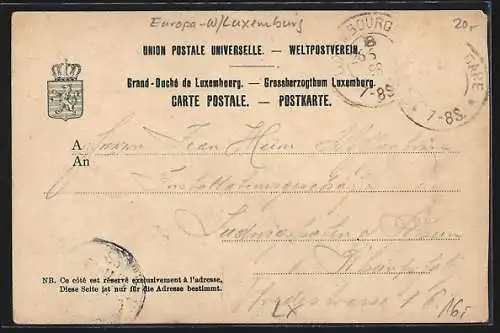 Europa-W/Luxemburg
20.-
LUXEMBOURG
GARE
7-8S.
7-8S.
UNION POSTALE UNIVERSELLE. — WELTPOSTVEREIN.
Grand-Duché de Luxembourg. — Grossherzogthum Luxemburg.
CARTE POSTALE. — POSTKARTE.
A Herrn Jean Heim
An
Installationsgeschäft
Ludwigshafen a. Rhein
NB. Ce côté est réservé exclusivement à l'adresse.
Diese Seite ist nur für die Adresse bestimmt.